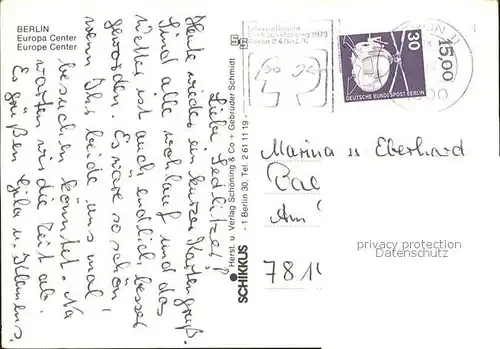 BERLIN
Europa Center
Europe Center
Liebe Sedlitzer!
Heute wieder ein kurzer Kartengruß.
Sind alle wohlauf und das
Wetter ist auch endlich besser
geworden. Es wäre so schön
wenn Ihr beide uns mal
besuchen könntet. Na
warten wir die Zeit ab.
Es grüßen Gila u. Klemens.
SCHIKKUS
Herst. u. Verlag Schöning & Co + Gebrüder Schmidt
- 1 Berlin 30, Tel. 2 61 11 19 -
Internationale
Funkausstellung 1979
Berlin 24.8.-2.9.
30
DEUTSCHE BUNDESPOST BERLIN
BERLIN 11
15,00
Marina u Eberhard
Bal
Am
781
privacy protection
Datenschutz